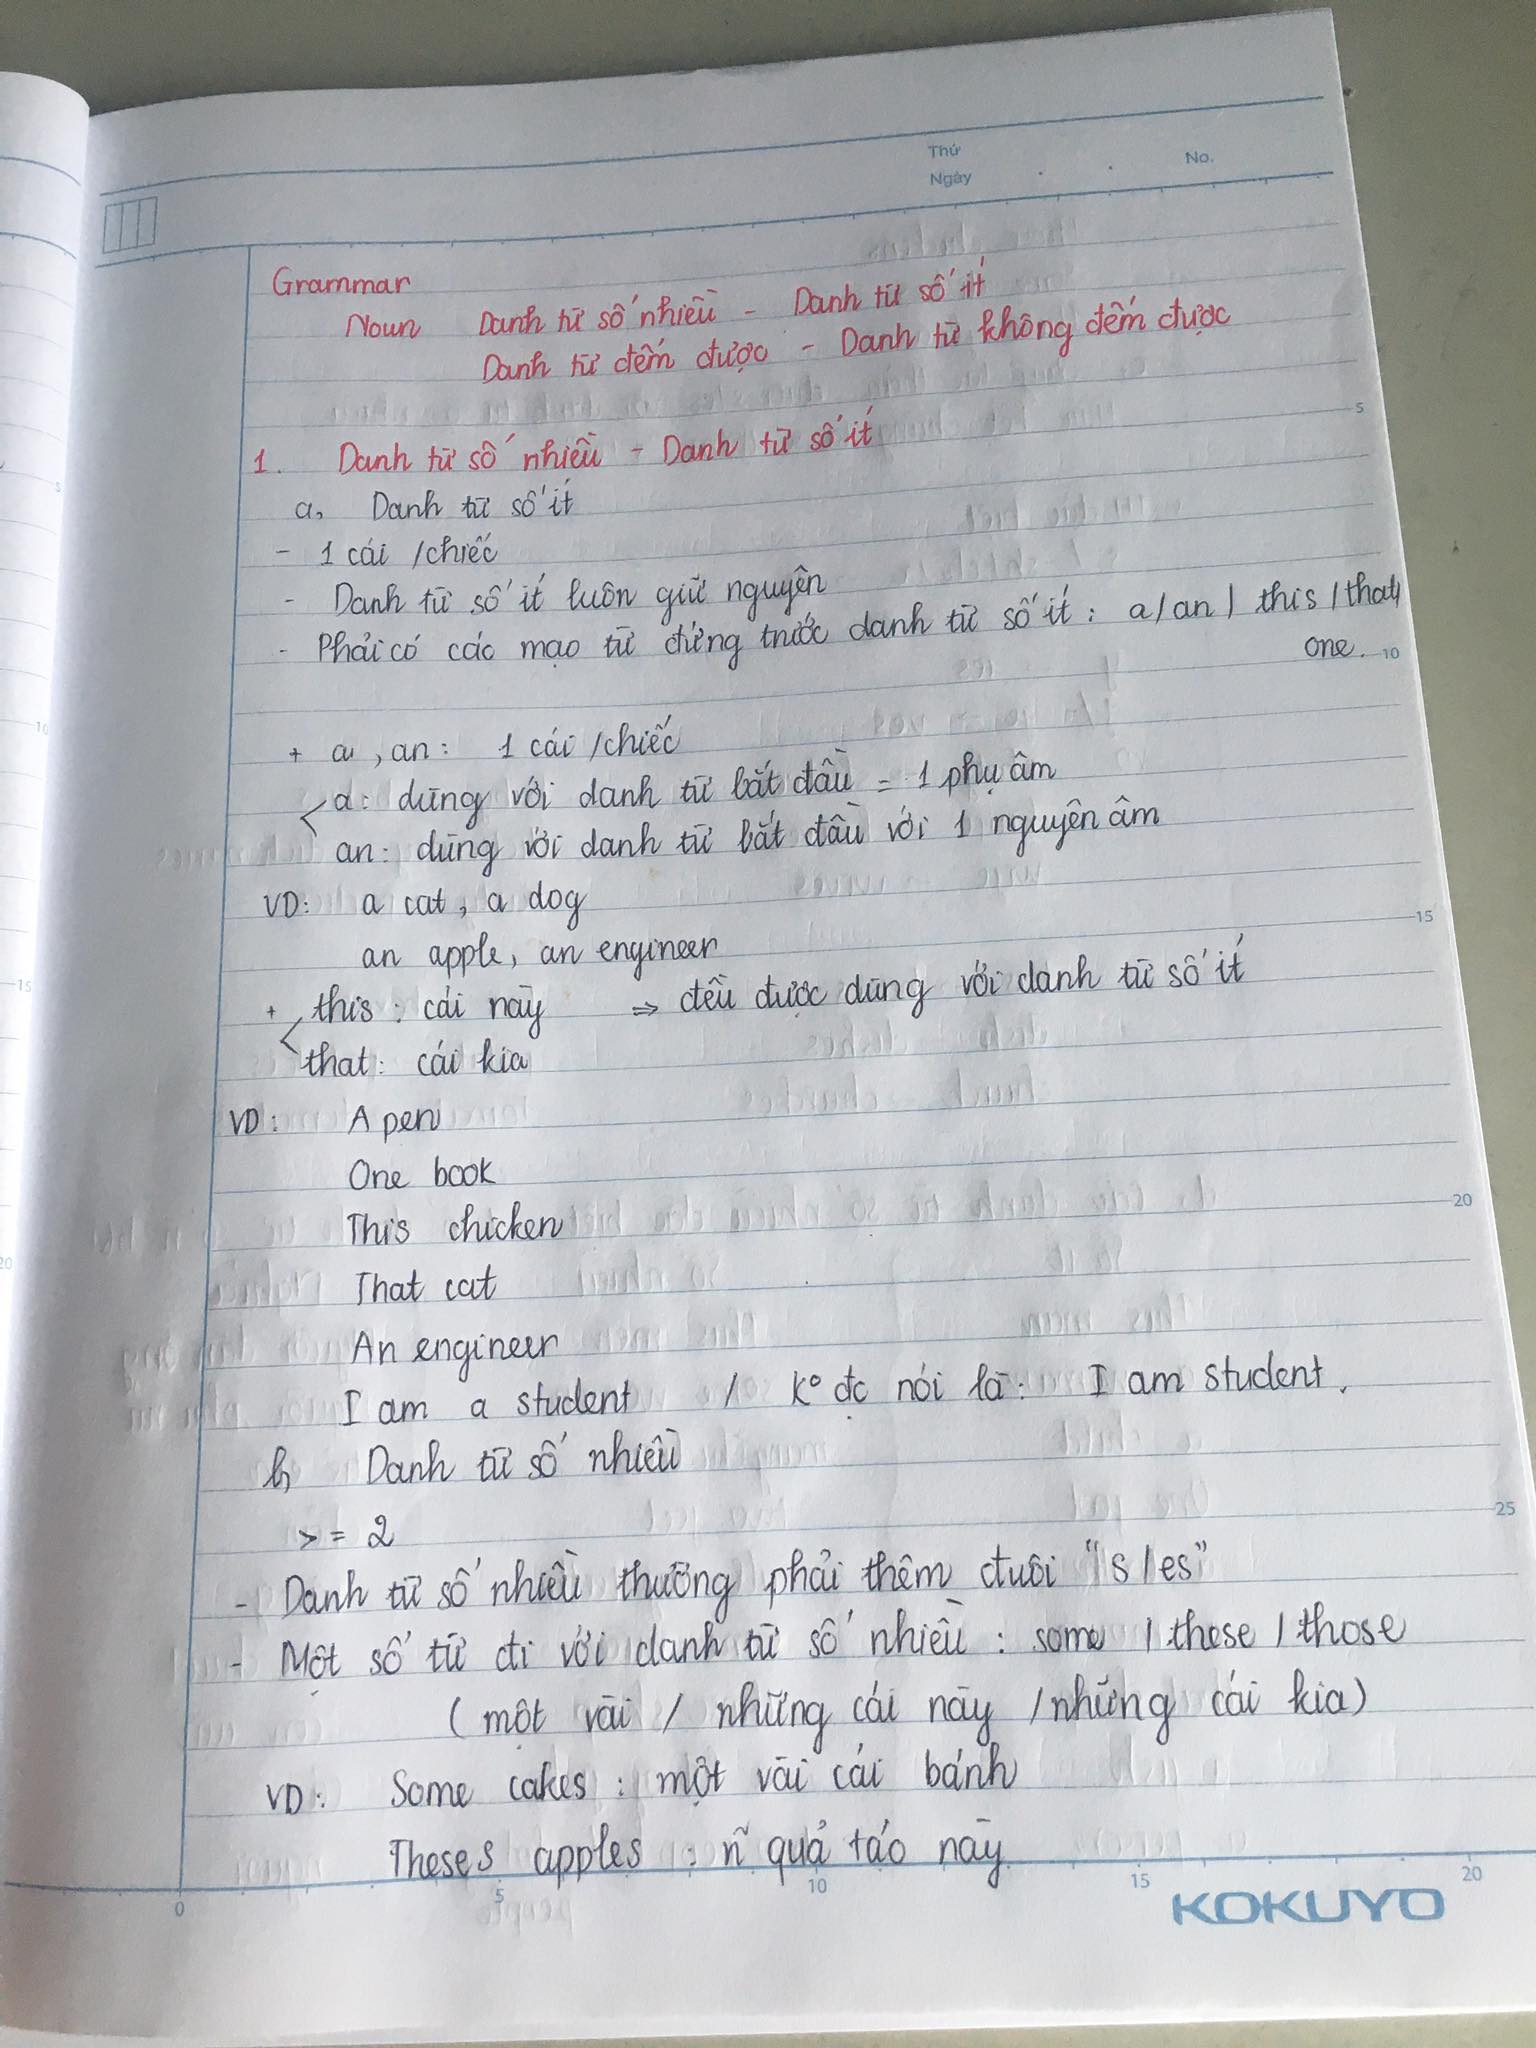 Thứ
Ngày
No.
Grammar
Noun Danh từ số nhiều - Danh từ số ít
Danh từ đếm được - Danh từ không đếm được
1. Danh từ số nhiều - Danh từ số ít
a, Danh từ số ít
- 1 cái /chiếc
- Danh từ số ít luôn giữ nguyên
- Phải có các mạo từ đứng trước danh từ số ít : a/an / this /that/
one.
+ a , an : 1 cái /chiếc
a : dùng với danh từ bắt đầu = 1 phụ âm
an : dùng với danh từ bắt đầu với 1 nguyên âm
VD: a cat, a dog
an apple, an engineer
+ this : cái này ⇒ đều được dùng với danh từ số ít
that : cái kia
VD : A pen
One book
This chicken
That cat
An engineer
I am a student / k° đc nói là : I am student.
b, Danh từ số nhiều
>= 2
- Danh từ số nhiều thường phải thêm đuôi "s/es"
- Một số từ đi với danh từ số nhiều : some / these / those
( một vài / những cái này /những cái kia)
VD : Some cakes : một vài cái bánh
Theses apples : ñ quả táo này
5
10
15
20
25
0
5
10
15
20
KOKUYO